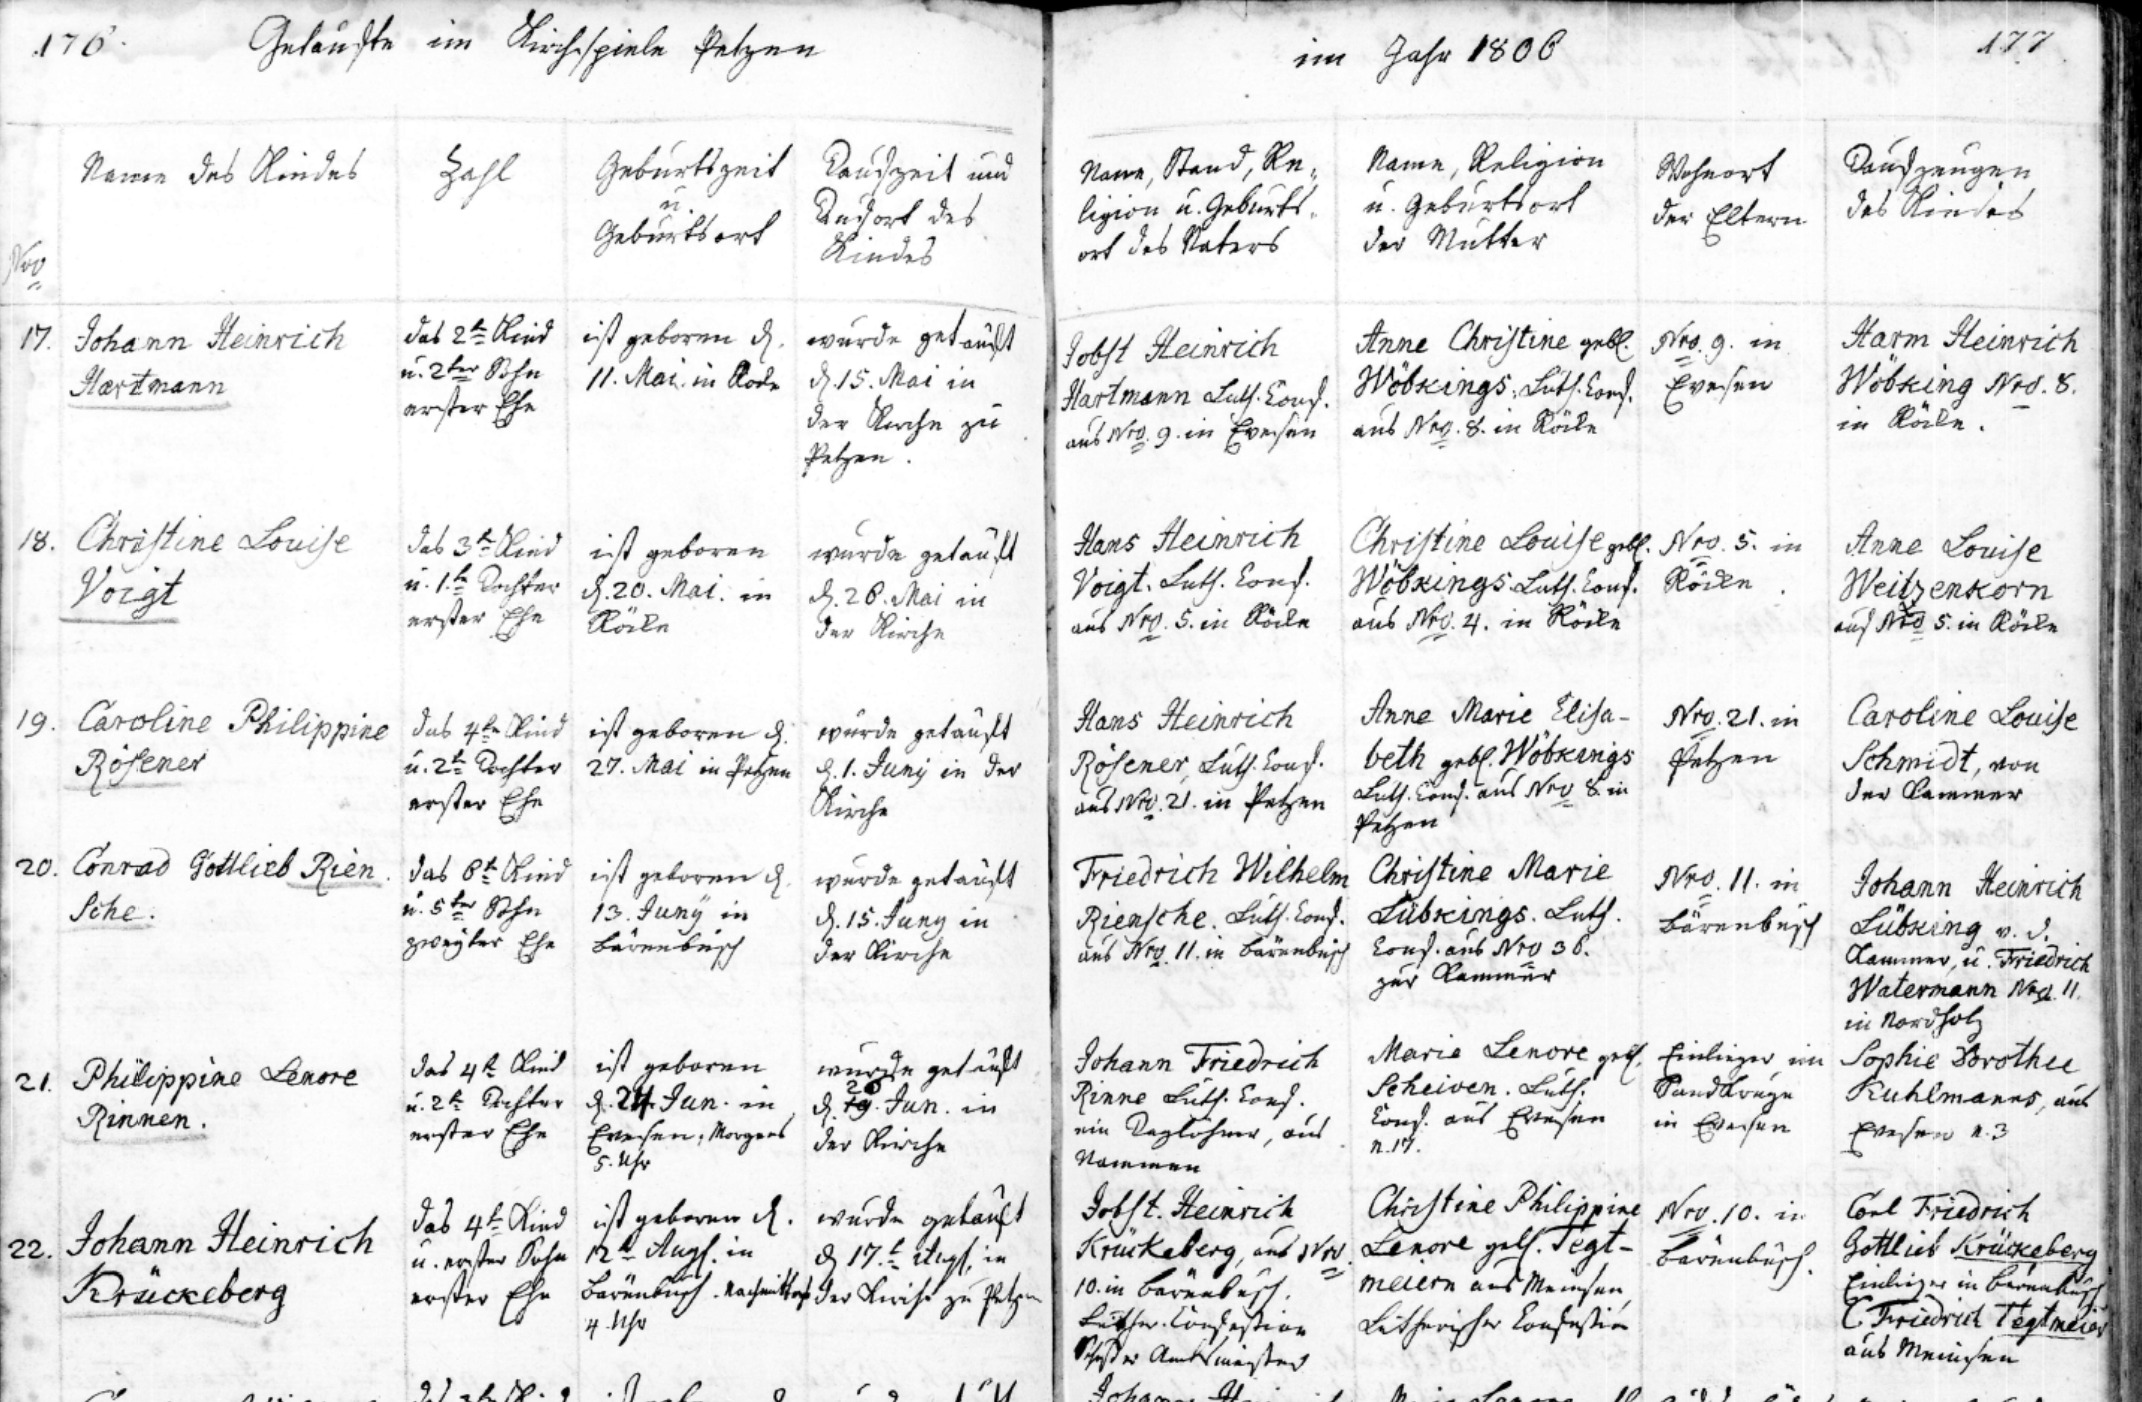 176.
Getaufte im Kirchspiele Petzen
im Jahr 1806
177
Nro
Name des Kindes
Zahl
Geburtszeit
u.
Geburtsort
Taufzeit und
Taufort des
Kindes
Name, Stand, Re-
ligion u. Geburts-
ort des Vaters
Name, Religion
u. Geburtsort
der Mutter
Wohnort
der Eltern
Taufzeugen
des Kindes
17. Johann Heinrich
Hartmann
das 2te Kind
u. 2ter Sohn
erster Ehe
ist geboren d.
11. Mai. in Röcke
wurde getauft
d. 15. Mai in
der Kirche zu
Petzen.
Jobst Heinrich
Hartmann Luth. Conf.
aus Nro. 9. in Evesen
Anne Christine geb.
Wöbkings. Luth. Conf.
aus Nro. 8. in Röcke
Nro. 9. in
Evesen
Harm Heinrich
Wöbking Nro. 8.
in Röcke.
18. Christine Louise
Voigt
das 3te Kind
u. 1te Tochter
erster Ehe
ist geboren
d. 20. Mai. in
Röcke
wurde getauft
d. 26. Mai in
der Kirche
Hans Heinrich
Voigt. Luth. Conf.
aus Nro. 5. in Röcke
Christine Louise geb.
Wöbkings. Luth. Conf.
aus Nro. 4. in Röcke
Nro. 5. in
Röcke.
Anne Louise
Weitzenkorn
aus Nro 5. in Röcke
19. Caroline Philippine
Rösener
das 4te Kind
u. 2te Tochter
erster Ehe
ist geboren d.
27. Mai in Petzen
wurde getauft
d. 1. Juny in der
Kirche
Hans Heinrich
Rösener, Luth. Conf.
aus Nro. 21. in Petzen
Anne Marie Elisa-
beth geb. Wöbkings
Luth. Conf. aus Nro 8. in
Petzen
Nro. 21. in
Petzen
Caroline Louise
Schmidt, von
der Cammer
20. Conrad Gottlieb Rien-
sche.
das 6te Kind
u. 5ter Sohn
zweyter Ehe
ist geboren d.
13. Juny in
Bärenbusch
wurde getauft
d. 15. Juny in
der Kirche
Friedrich Wilhelm
Riensche. Luth. Conf.
aus Nro. 11. in Bärenbusch
Christine Marie
Lübkings. Luth.
Conf. aus Nro 36.
zur Cammer
Nro. 11. in
Bärenbusch
Johann Heinrich
Lübking v. d.
Cammer, u. Friedrich
Watermann Nro. 11.
in Nordholz
21. Philippine Lenore
Rinnen.
das 4te Kind
u. 2te Tochter
erster Ehe
ist geboren
d. 24. Jun. in
Evesen, Morgens
5. Uhr
wurde getauft
d. 29. Jun. in
der Kirche
Johann Friedrich
Rinne Luth. Conf.
ein Taglöhner, aus
Nammen
Marie Lenore geb.
Scheiven. Luth.
Conf. aus Evesen
n. 17.
Einlieger im
Sandkruge
in Evesen
Sophie Dorothee
Kuhlmanns, aus
Evesen n. 3
22. Johann Heinrich
Krückeberg
das 4te Kind
u. erster Sohn
erster Ehe
ist geboren d.
12te Augs. in
Bärenbusch. Nachmittags
4 Uhr
wurde getauft
d 17.t Augs. in
der Kirche zu Petzen
Jobst. Heinrich
Krückeberg, aus Nro.
10. in Bärenbusch.
Luther. Confession
Amtsmeister
Christine Philippine
Lenore geb. Tegt-
meiern aus Meinsen,
Lutherischer Confession
Nro. 10. in
Bärenbusch.
Carl Friedrich
Gottlieb Krückeberg
Einlieger in Bärenbusch
C Friedrich Tegtmeier
aus Meinsen